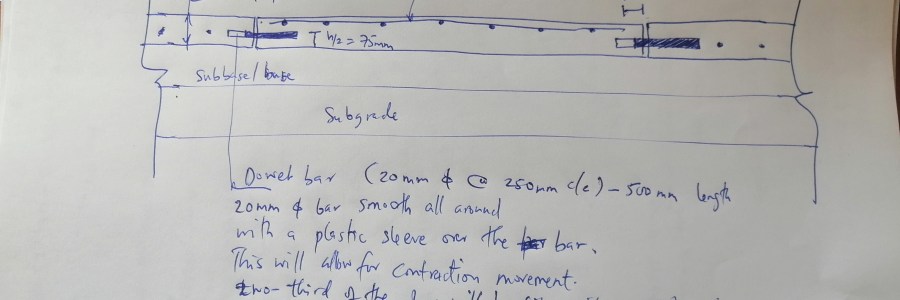 T h/2 = 75mm
Subbase/base
Subgrade
Dowel bar (20mm ϕ @ 250mm c/c) - 500mm length
20mm ϕ bar smooth all around
with a plastic sleeve over the bar.
This will allow for contraction movement.
two-third of the